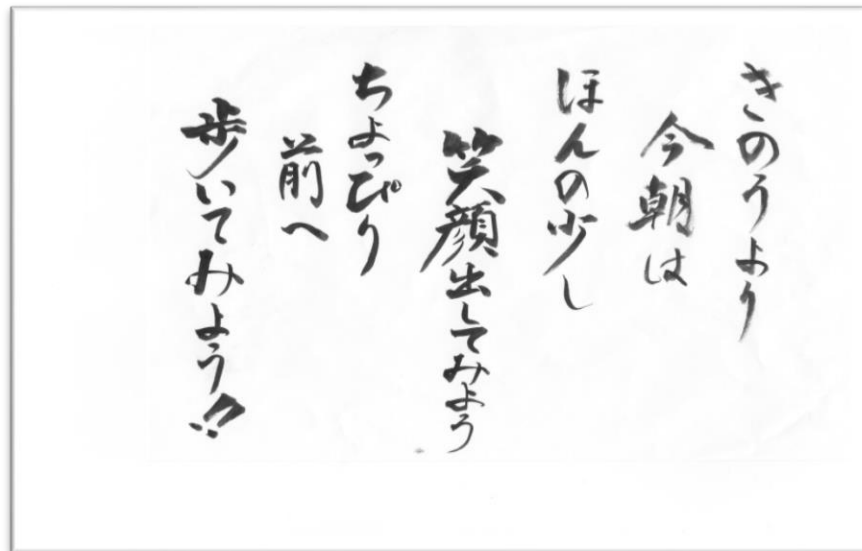 きのうより
今朝は
ほんの少し
笑顔出してみよう
ちょっぴり
前へ
歩いてみよう!!